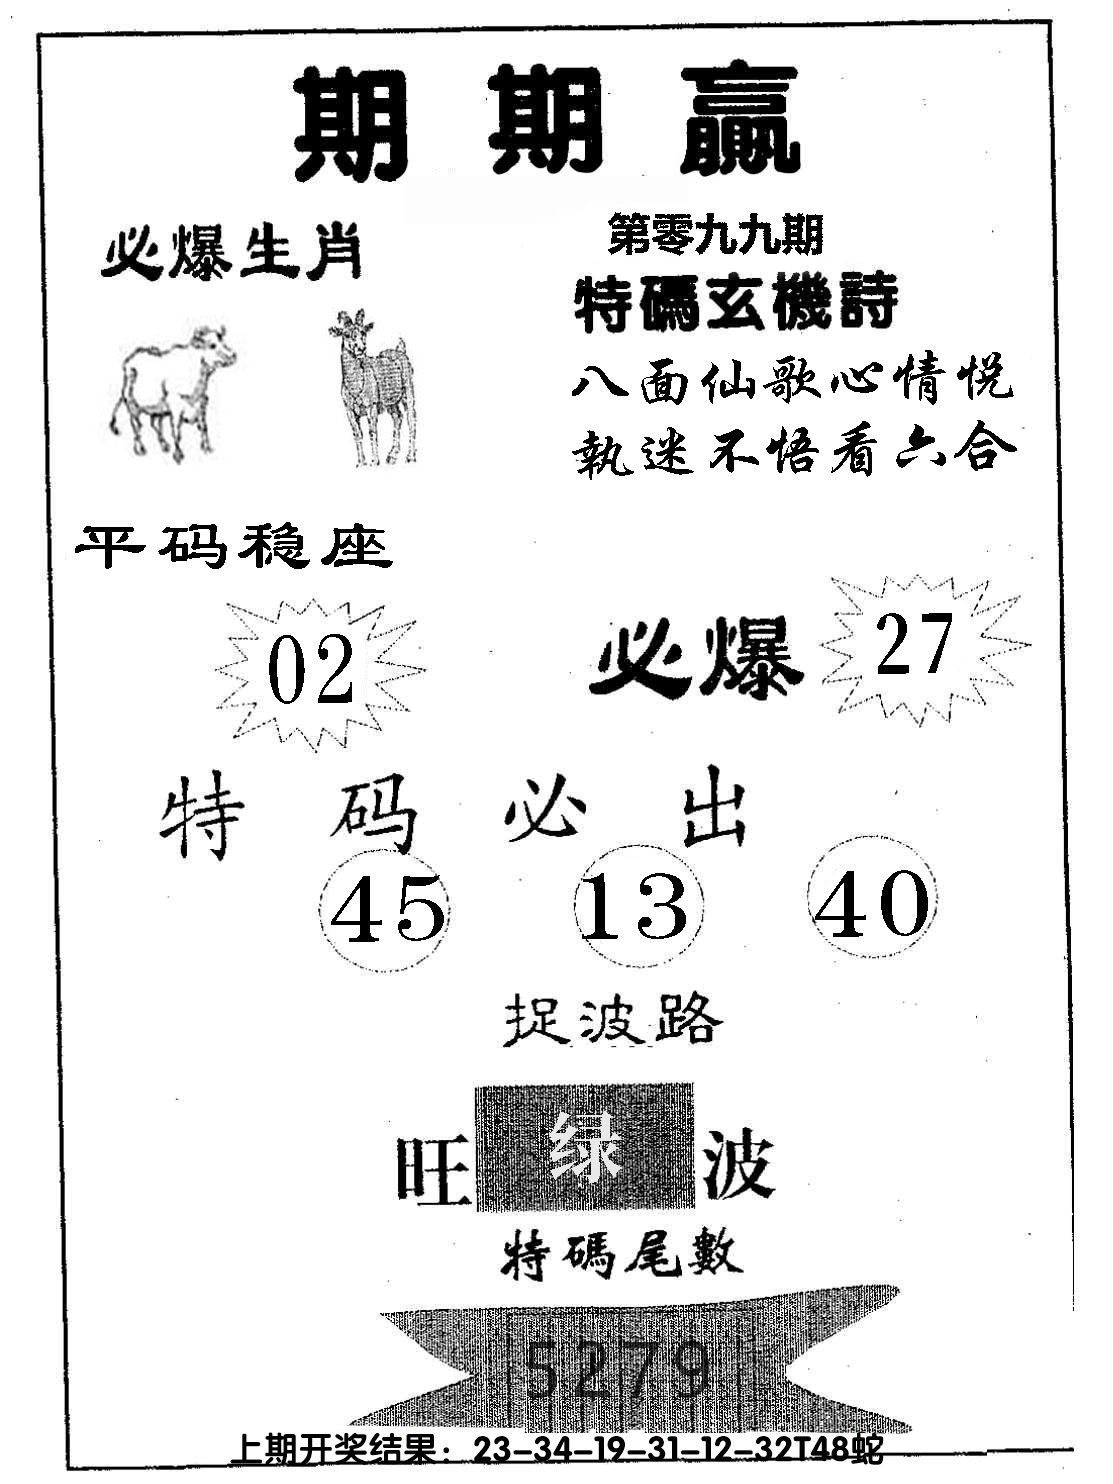 期期赢
必爆生肖
第零九九期
特碼玄機詩
八面仙歌心情悦
執迷不悟看六合
平码稳座
02
必爆 27
特码必出
45 13 40
捉波路
旺 绿 波
特碼尾數
5279
上期开奖结果：23-34-19-31-12-32T48蛇